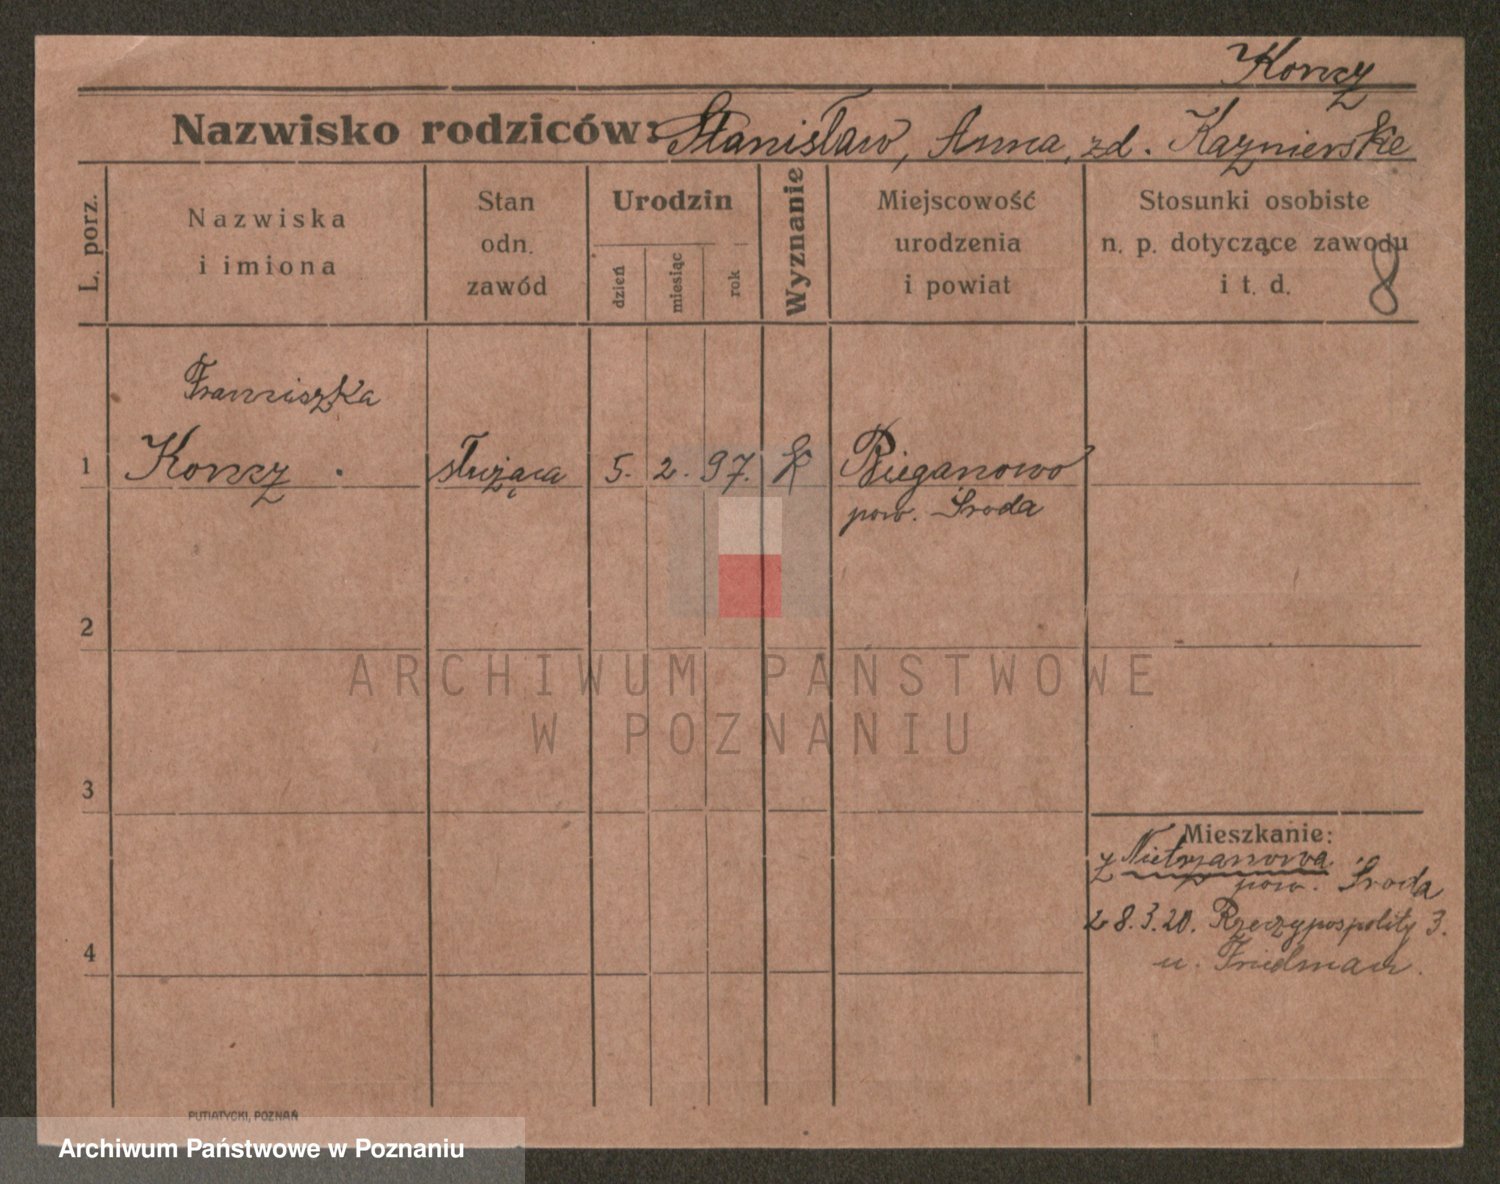 Koncz
Nazwisko rodziców: Stanisław, Anna, zd. Kaznierske
L. porz.
Nazwiska
i imiona
Stan
odn.
zawód
Urodzin
dzień
miesiąc
rok
Wyznanie
Miejscowość
urodzenia
i powiat
Stosunki osobiste
n. p. dotyczące zawodu
i t. d.
8
Franciszka
1 Koncz służąca 5. 2. 97. K Bieganowo
pow. Środa
2
ARCHIWUM PAŃSTWOWE
W POZNANIU
3
Mieszkanie:
z Nietrzanowa
pow. Środa
28.3.20. Rzeczypospolity 3.
u. Friedman
4
PUTIATYCKI, POZNAŃ
Archiwum Państwowe w Poznaniu